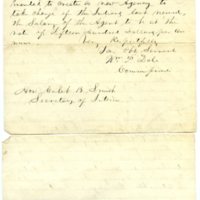 to create a new Agency to
take charge of the Indians last named,
the Salary of the Agent to be at the
rate of fifteen hundred dollars per an
num.
Very Respectfully
Obt Servant
Wm P. Dole
Commissioner
Hon Caleb B. Smith
Secretary of Interior